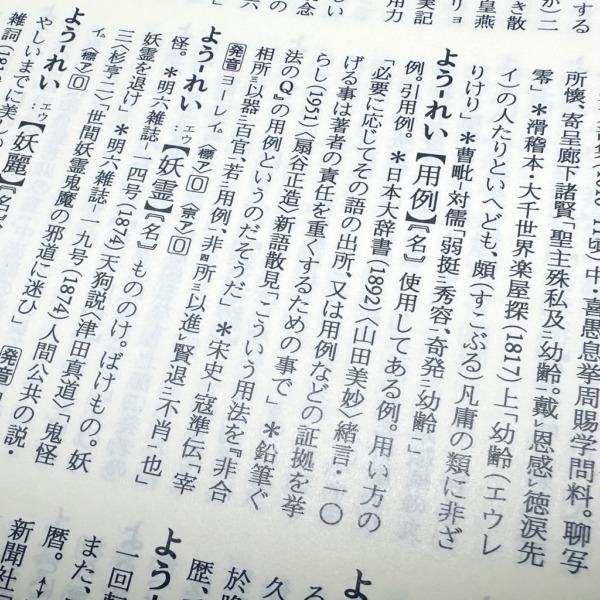 所懐、寄呈廊下諸賢「聖主殊私及
二
幼齢
。
戴
レ
恩感
レ
徳涙先
零」＊滑稽本・大千世界楽屋探(1817)上「幼齢(エウレ
イ)の人たりといへども、頗(すこぶる)凡庸の類に非ざ
りけり」＊曹毗‐対儒「弱挺
二
秀容
一
、奇発
二
幼齢
一
」
よう‐れい【用例】〘名〙使用してある例。用い方の
例。引用例。＊日本大辞書(1892)〈山田美妙〉緒言・一〇
「必要に応じてその語の出所、又は用例などの証拠を挙
げる事は著者の責任を重くするための事で」＊鉛筆ぐ
らし(1951)〈扇谷正造〉新語散見「こういう用法を『非合
法のQ』の用例というのだそうだ」＊宋史‐寇準伝「宰
相所
三
以器
二
百官
一
、若
二
用例
一
、非
四
所
三
以進
レ
賢退
二
不肖
一
也」
発音 ヨーレイ 〈標ア〉0 〈京ア〉0
よう‐れい エウ‥【妖霊】〘名〙もののけ。ばけもの。妖
怪。＊明六雑誌‐一四号(1874)天狗説〈津田真道〉「鬼怪
妖霊を退け」＊明六雑誌‐一九号(1874)人間公共の説・
三〈杉亨二〉「世間妖霊鬼魔の邪道に迷ひ」 発音
イ 〈標ア〉0
よう‐れい エウ‥【妖麗】〘名〙
やしいまでに美し
暦。↔
新聞社
また、
一回
よう‐し
歴、
於
久